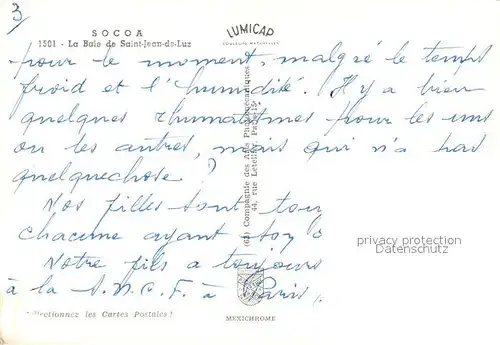 3/
SOCOA
1501 - La Baie de Saint-Jean-de-Luz
LUMICAP
COULEURS NATURELLES
pour le moment, malgré le temps
froid et l'humidité. Il y a bien
quelques rhumatismes pour les uns
ou les autres, mais qui n'a pas
quelquechose ?
Nos filles sont tou
chacune ayant son
Notre fils a toujours
à la S.N.C.F. à Paris,
(62) Compagnie des Arts Photomécaniques
44, rue Letellier, Paris-15e
privacy protection
Datenschutz
lectionnez les Cartes Postales !
MEXICHROME